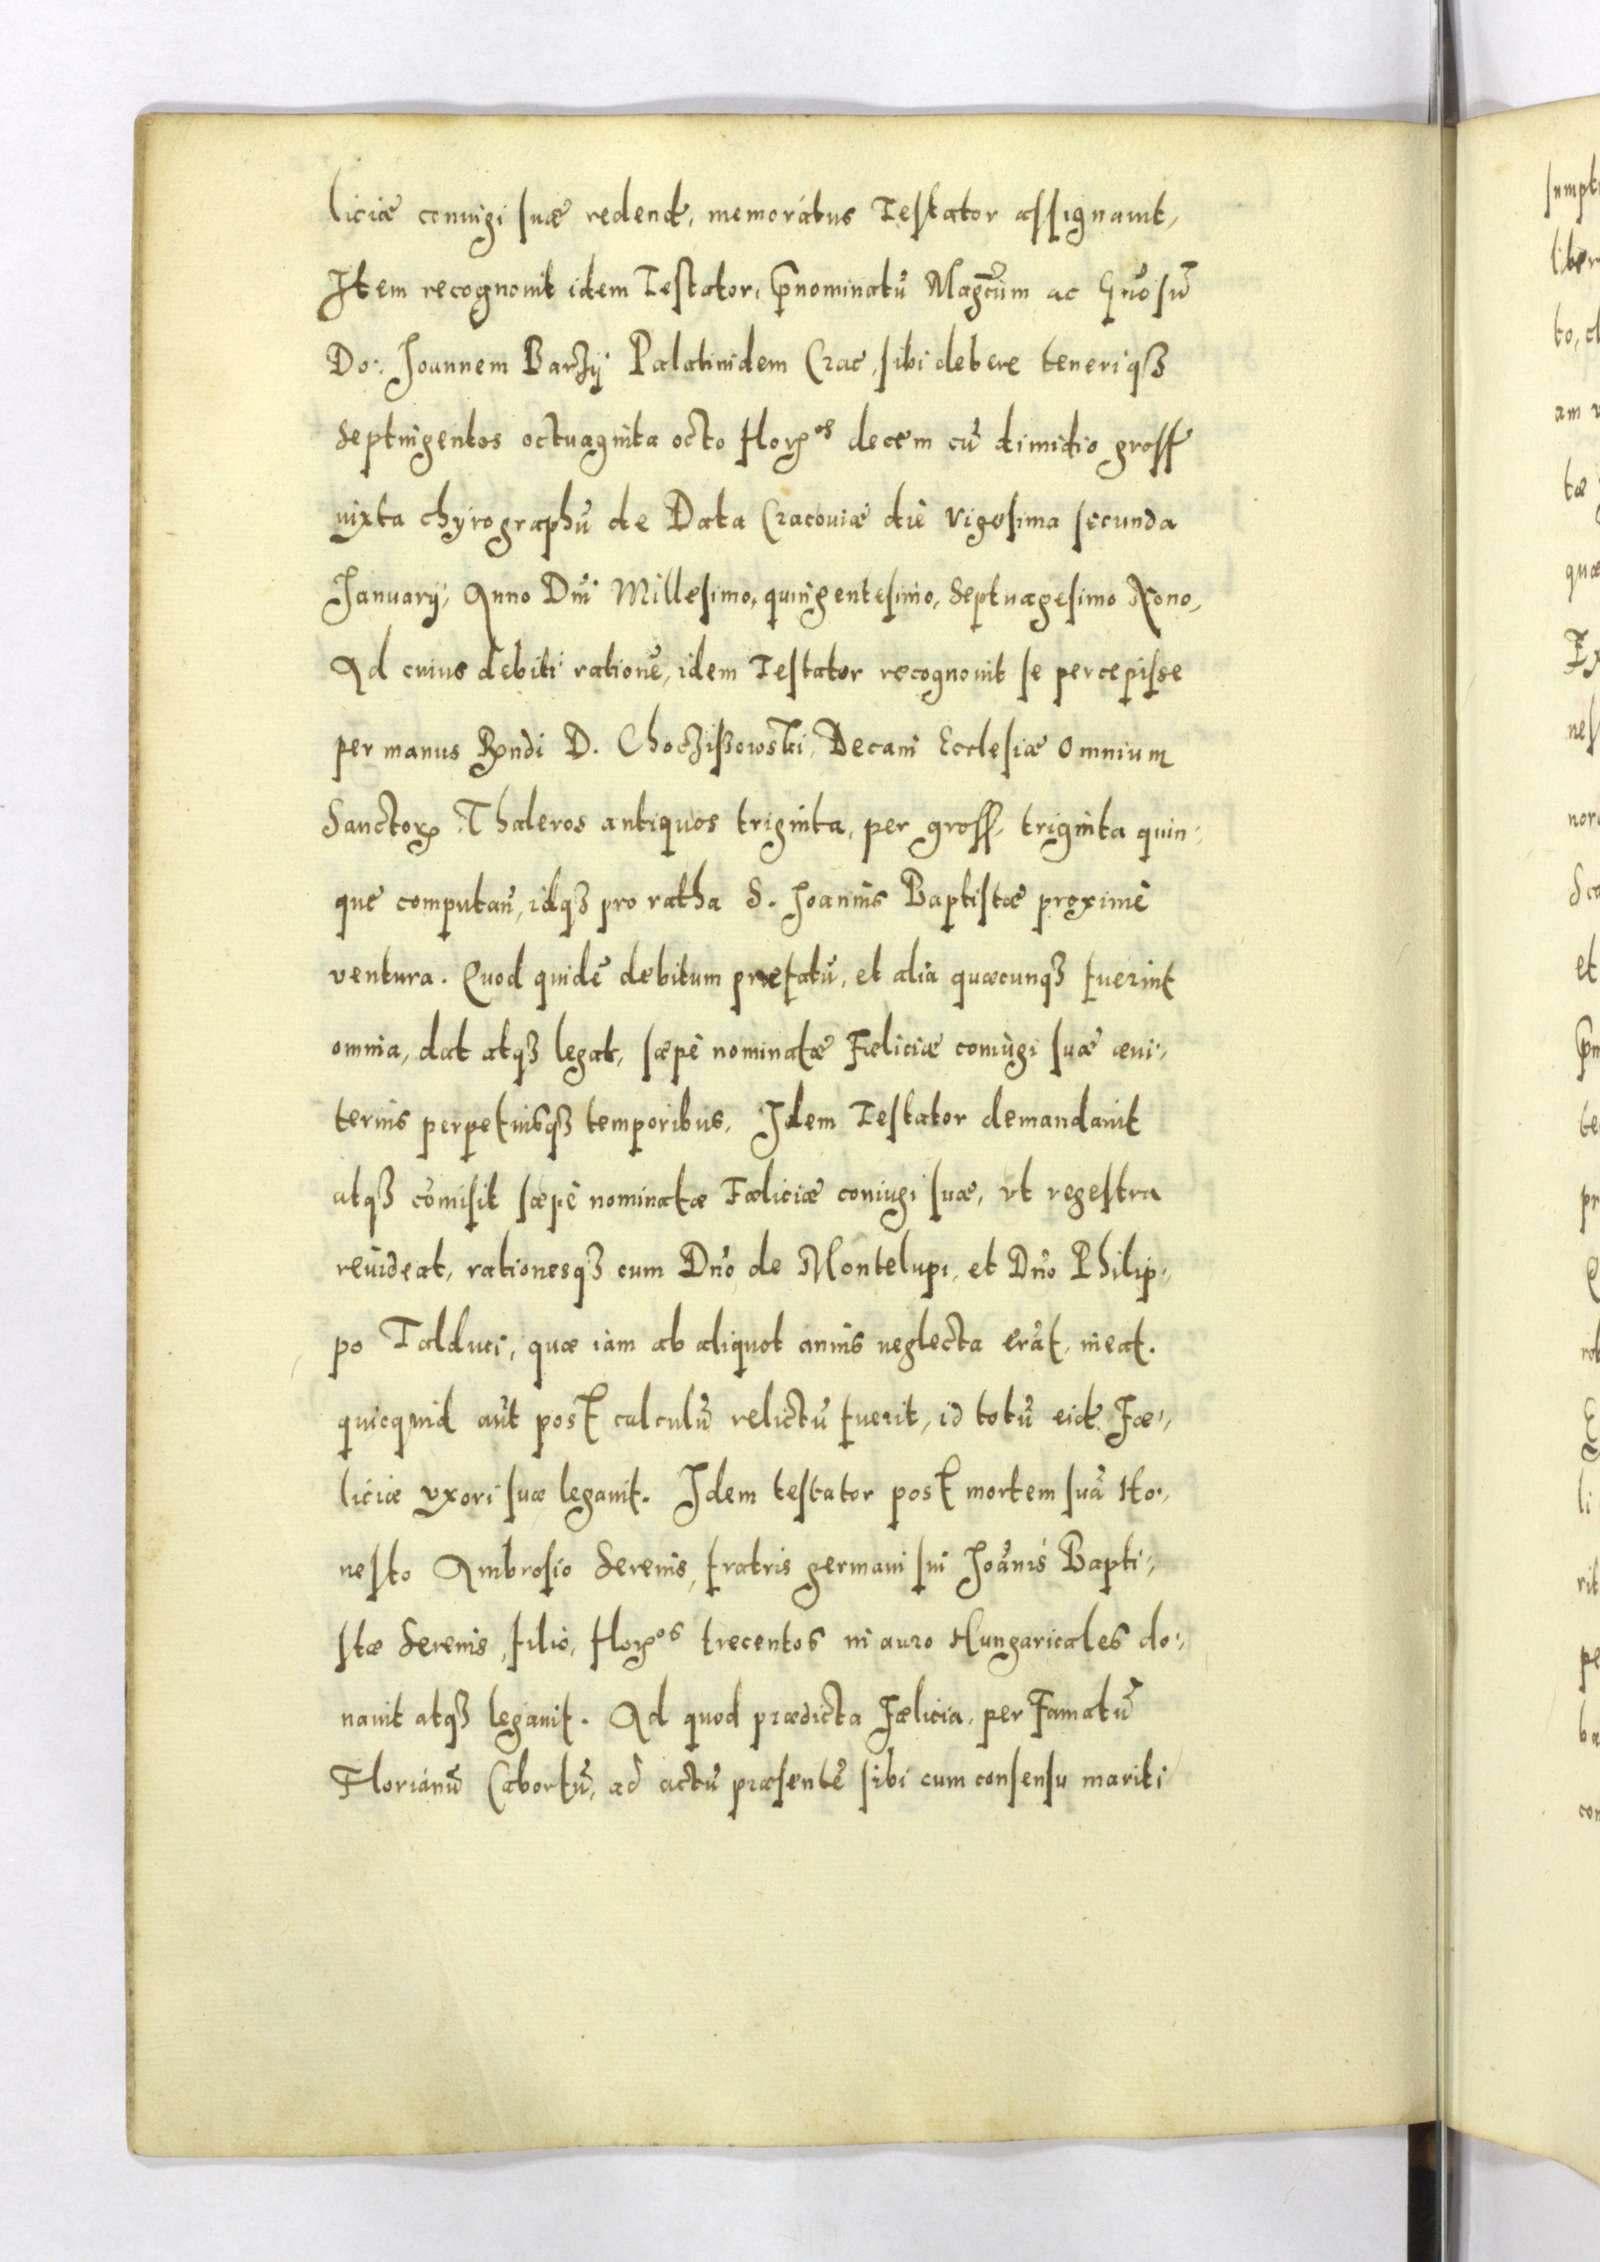 liciæ coniugi suæ redend, memoratus Testator assignauit,
Item recognouit idem Testator, p̄nominatū Mag̃cum ac G̃nosū
Do: Joannem Barzy Palatinidem Crac, sibi debere teneriqȝ
Septingentos octuaginta octo floꝝos decem cū dimidio gross
iuxta chyrographū de Data Cracouiæ die Vigesima secunda
January, Anno Dn̄i Millesimo, quingentesimo, Septuagesimo Nono,
Ad cuius debiti rationē, idem Testator recognouit se percepisse
per manus Rn̄di D. Choczissowski, Decani Ecclesiæ Omnium
Sanctoꝝ Thaleros antiquos triginta, per gross, triginta quin:
que computan̄, idqȝ pro ratha S. Joannis Baptistæ proximè
ventura. Quod quidē debitum præfatū, et alia quæcunqȝ fuerint
omnia, dat atqȝ legat, sæpè nominatæ Fæliciæ coniugi suæ æui:,
ternis perpetuisqȝ temporibus, Idem Testator demandauit
atqȝ cōmisit sæpè nominatæ Fæliciæ coniugi suæ, vt regestra
reuideat, rationesqȝ cum Dn̄o de Montelupi, et Dn̄o Philip:,
po Talduci, quæ iam ab aliquot annis neglecta erāt, ineat.
quicquid aūt post calculū relictū fuerit, id totū eid Fæ:,
liciæ vxori suæ legauit. Idem testator post mortem suā Ho:,
nesto Ambrosio Serenis, fratris germani sui Joānis Bapti:,
stæ Serenis, filio, floꝝos trecentos in auro Hungaricales do:,
nauit atqȝ legauit. Ad quod prædicta Fælicia, per Famatū
Florianū Cabortū, ad actū præsentē sibi cum consensu mariti